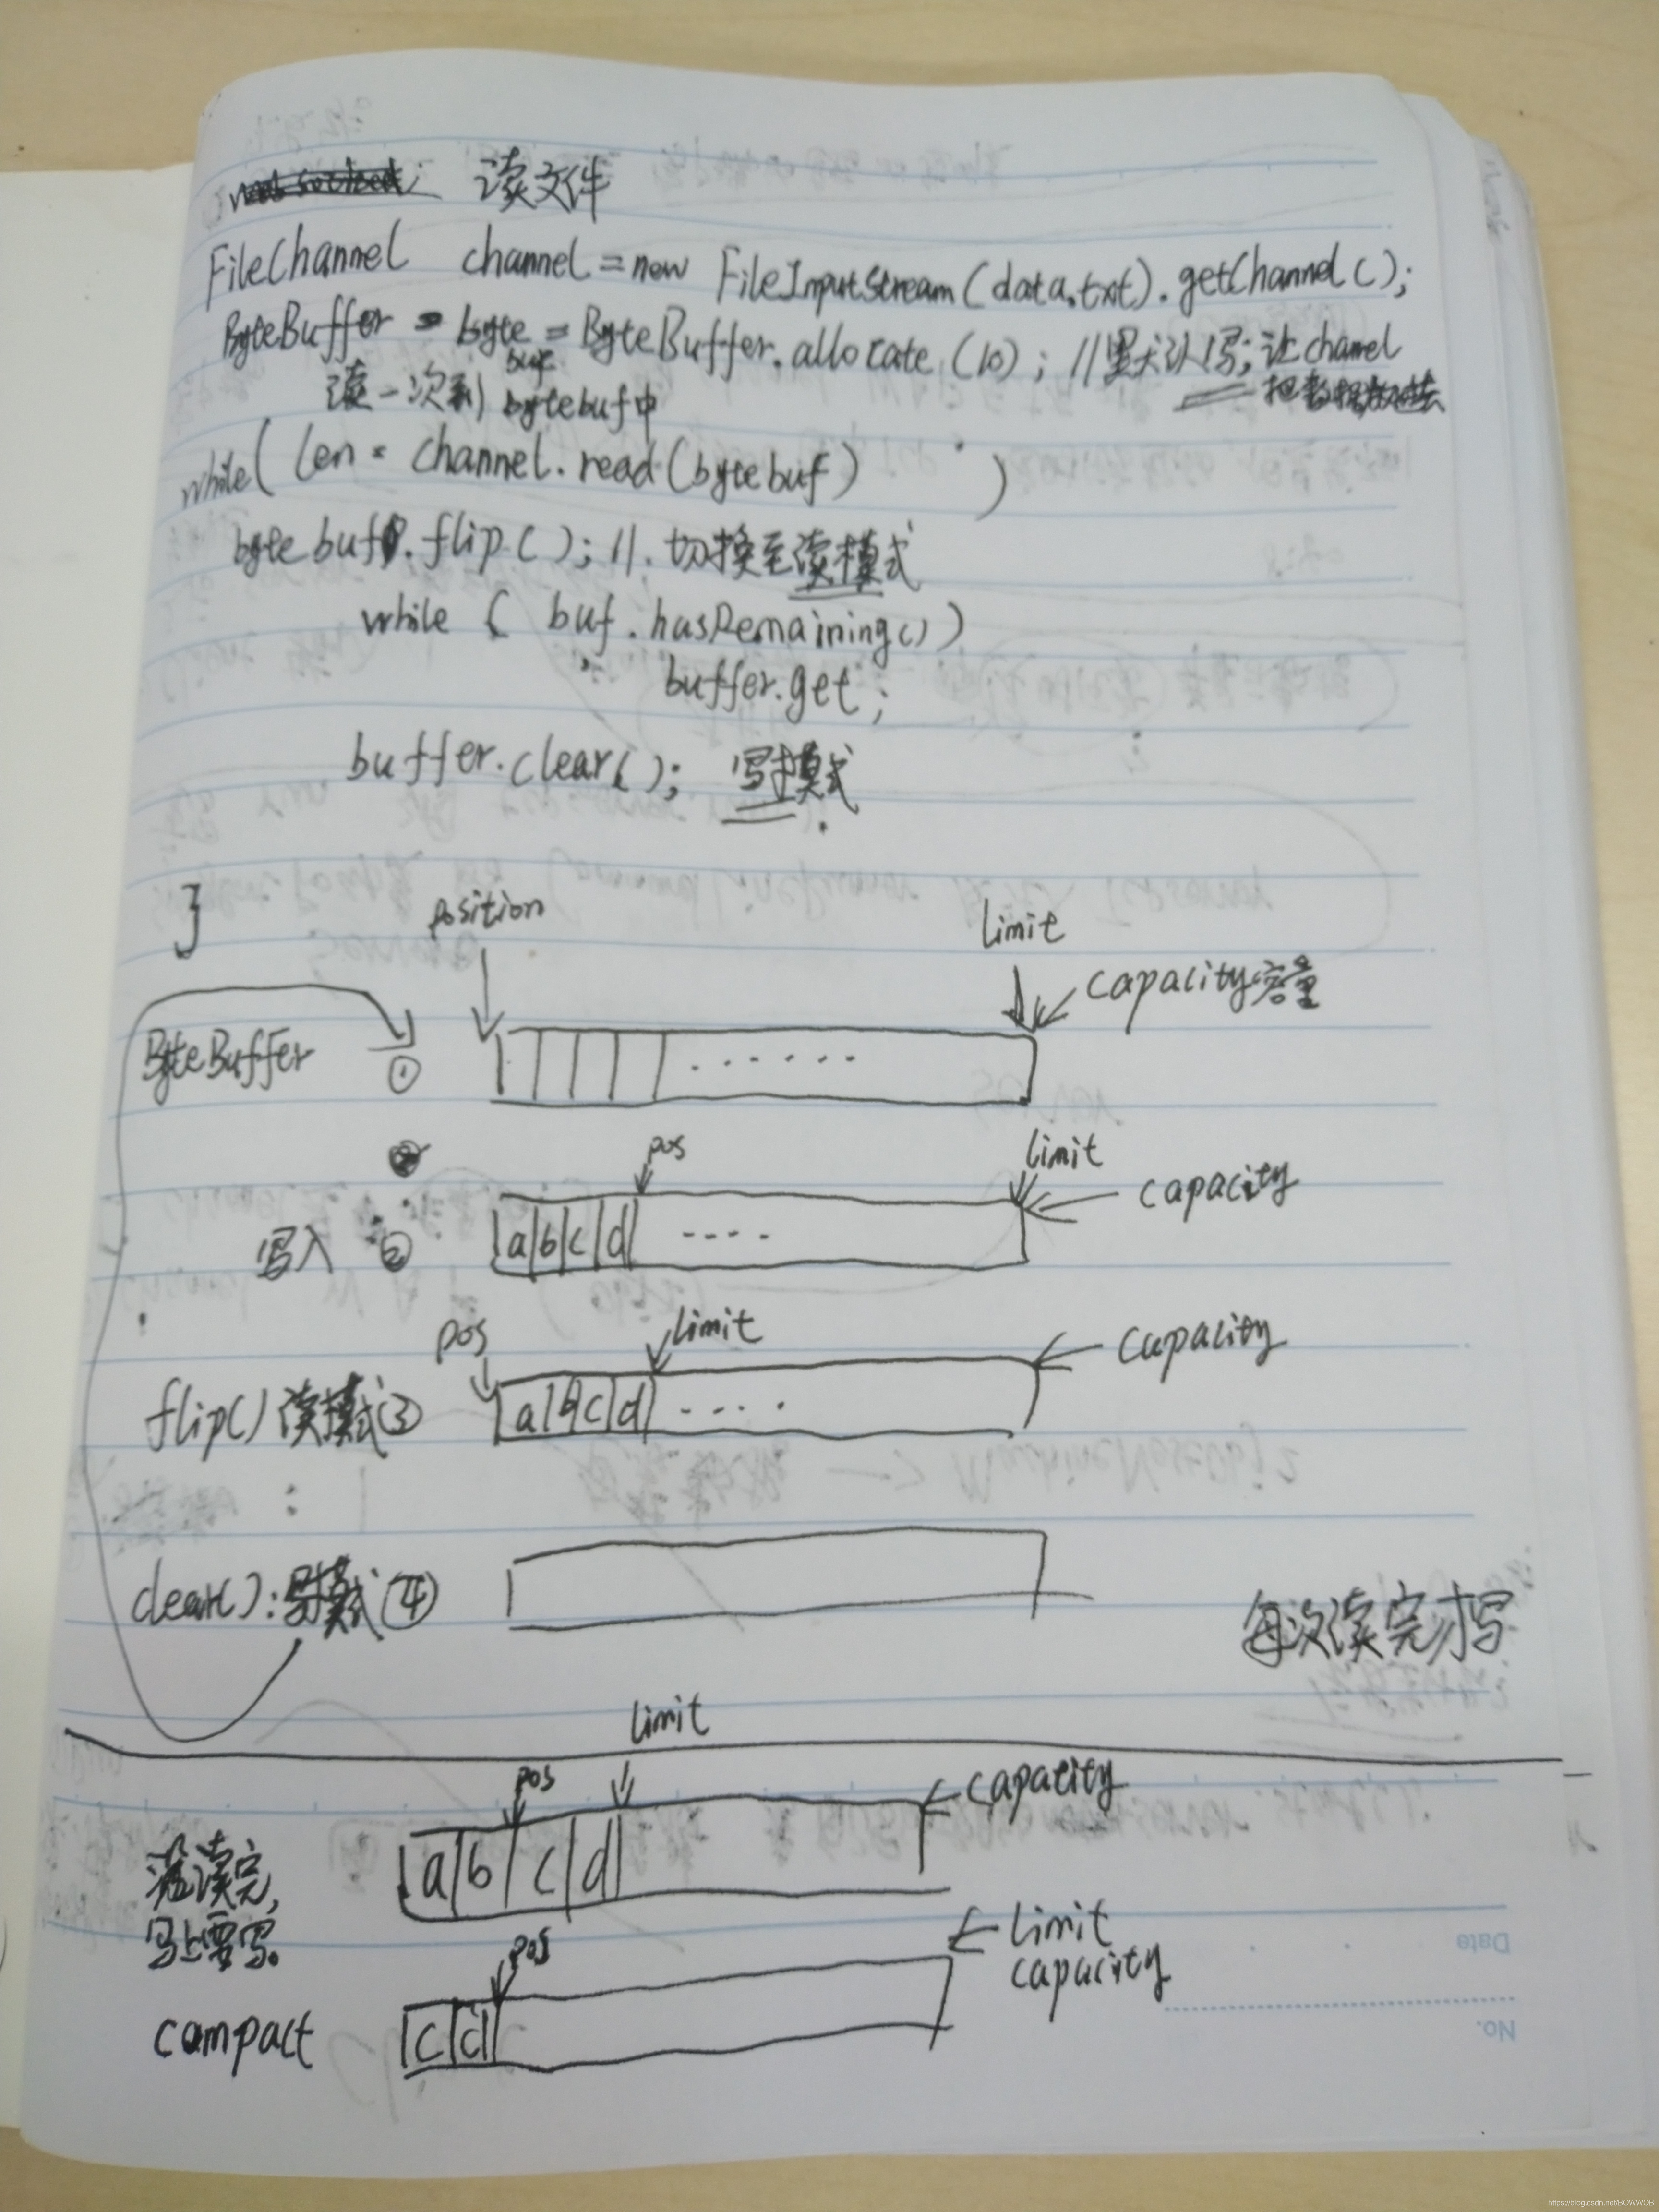 读文件
FileChannel channel = new FileInputStream(data.txt).getChannel();
ByteBuffer byte = ByteBuffer.allocate(10); //默认写; 让channel
buf
读一次到 bytebuf中
while( len = channel.read(bytebuf) )
bytebuf.flip(); //.切换至读模式
while ( buf.hasRemaining())
buffer.get;
buffer.clear(); 写模式
}
position limit
capacity容量
ByteBuffer ①
pos limit
capacity
写入 ② a b c d
pos limit capacity
flip() 读模式③ a b c d
clear():写模式④
每次读完才写
limit
pos capacity
没读完, a b c d
马上要写。
pos limit
capacity
compact c d
Date
No.
https://blog.csdn.net/BOWWOB